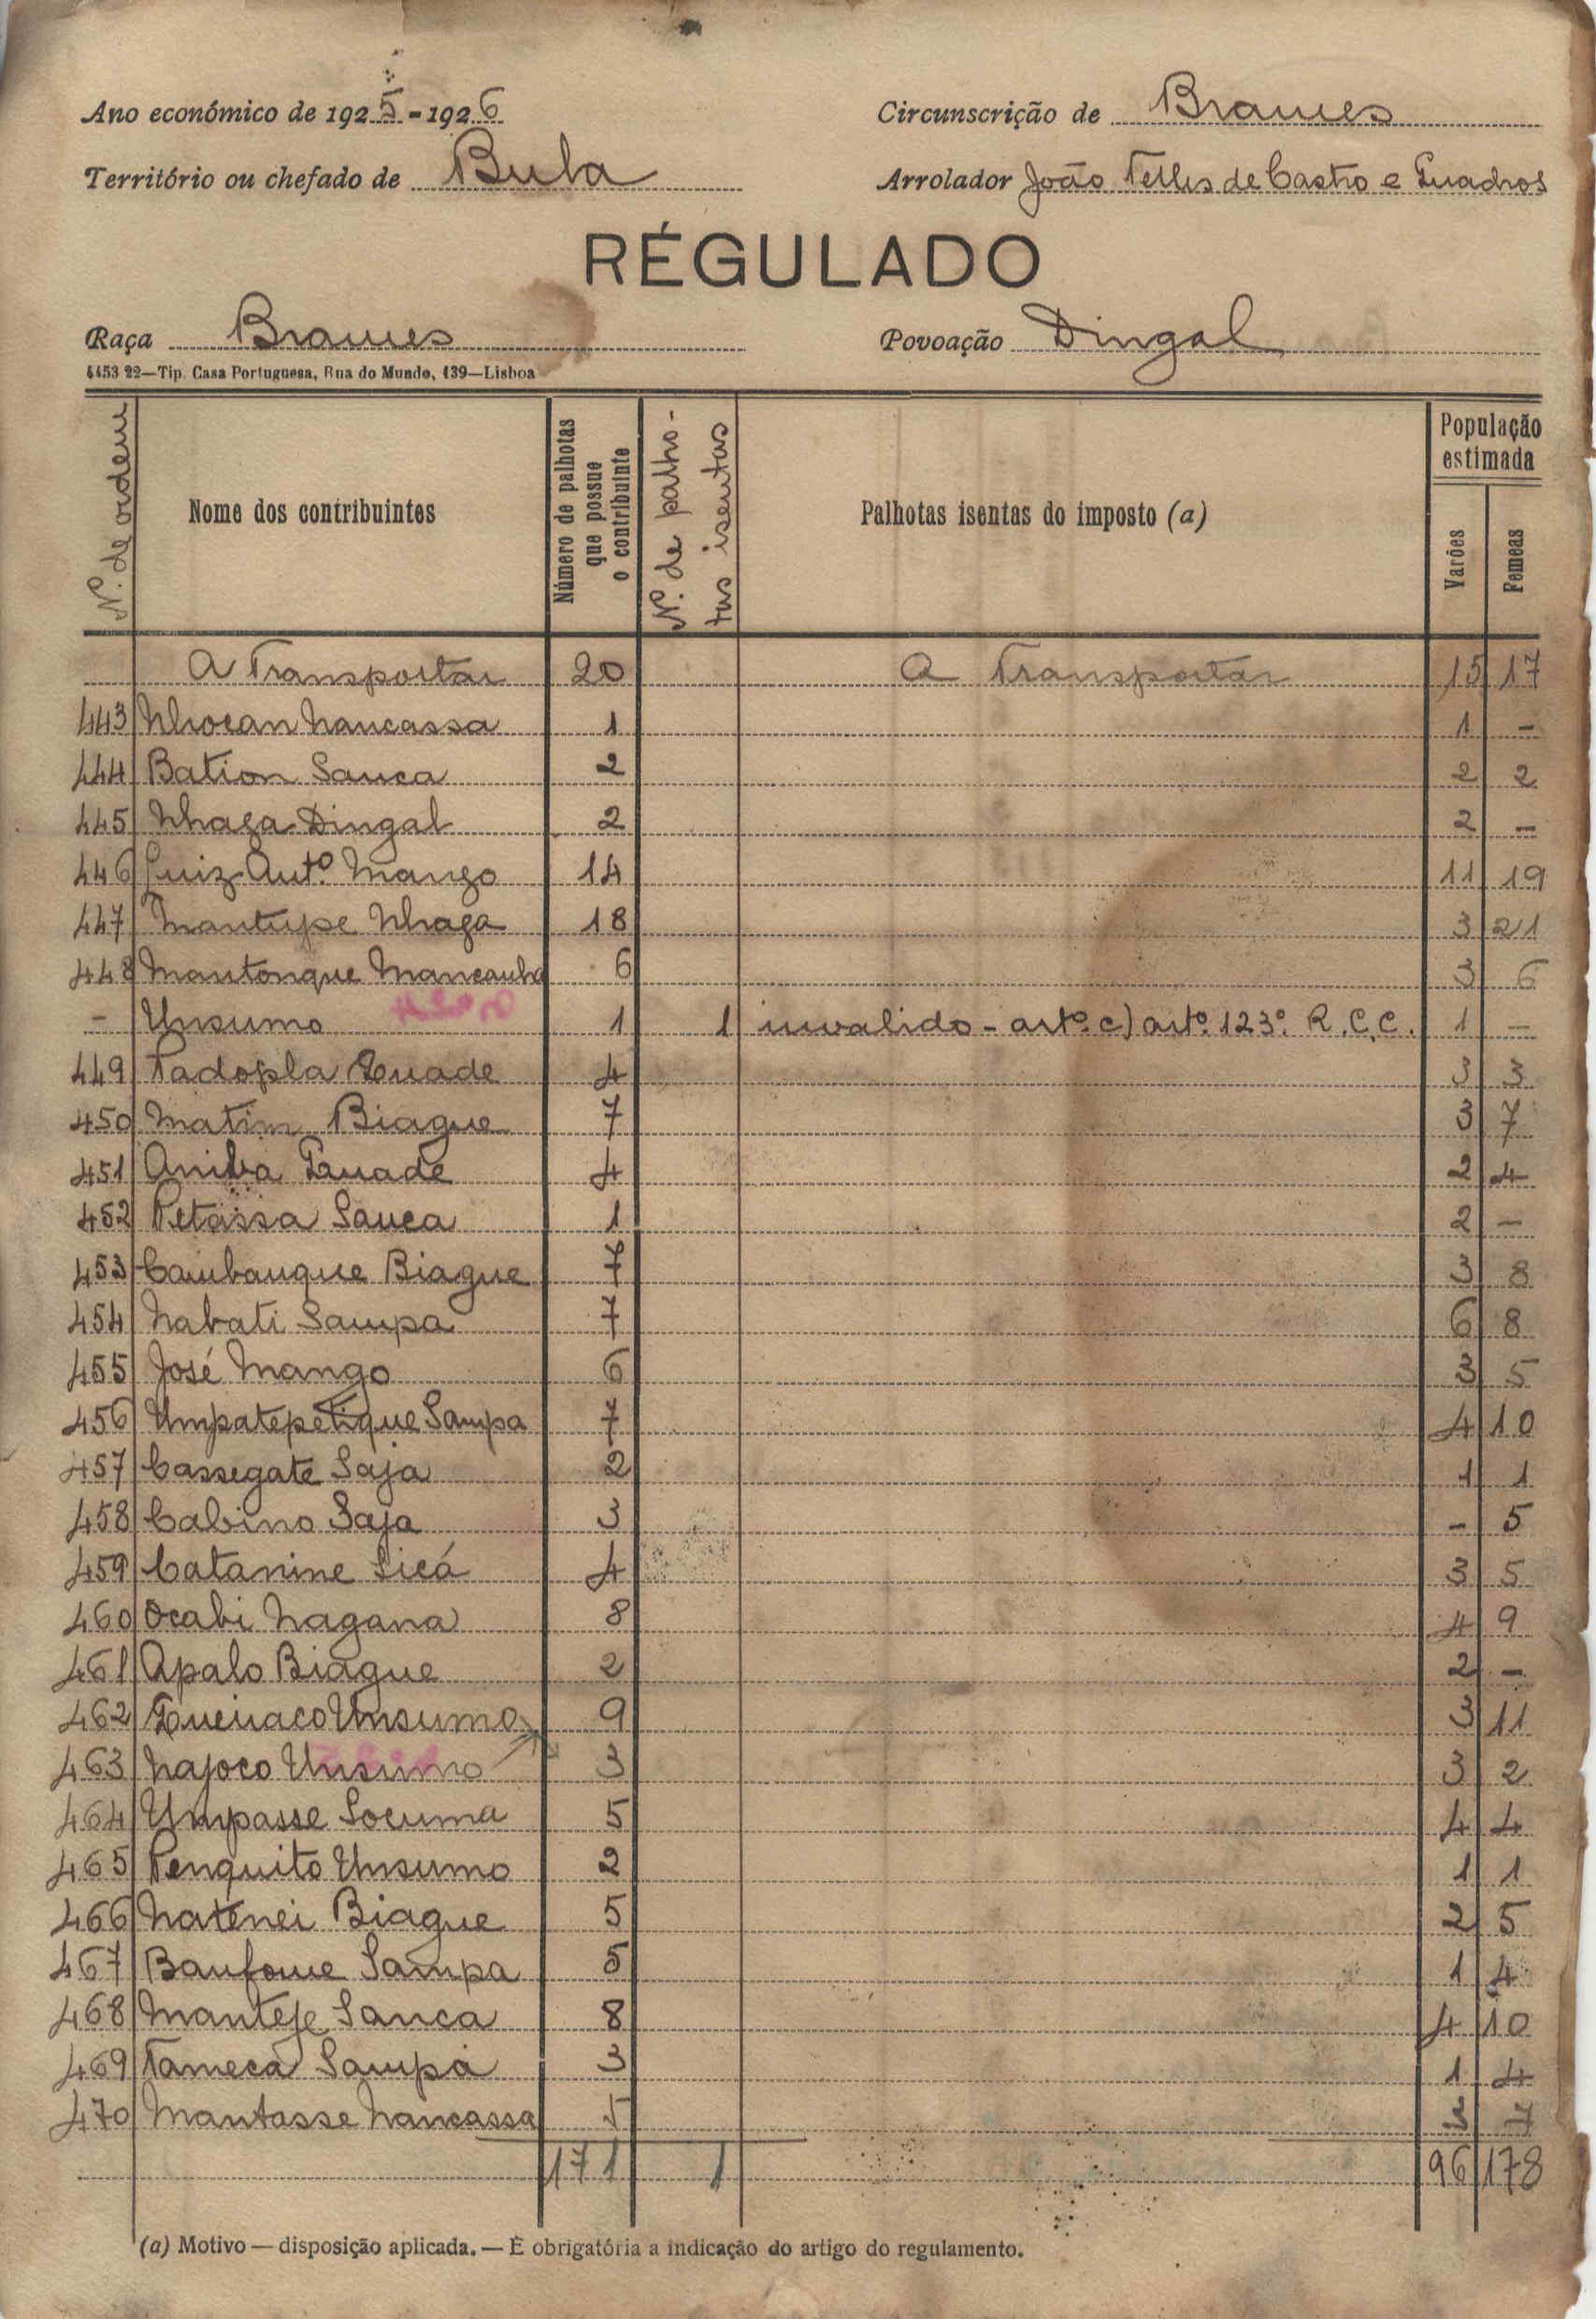 Ano económico de 1925-1926
Circunscrição de Brames
Território ou chefado de Bula
Arrolador João Telles de Castro e Quadros
RÉGULADO
Raça Brames
Povoação Dingal
4453 22—Tip. Casa Portuguesa, Rua do Mundo, 139—Lisboa
Nº. de ordem
Nome dos contribuintes
Número de palhotas que possue o contribuinte
Nº. de palho-tas isentas
Palhotas isentas do imposto (a)
População estimada
Varões
Femeas
A Transportar 20 A Transportar 15 17
443 Nhocan Nancassa 1 1 -
444 Bation Sanca 2 2 2
445 Nhaga Dingal 2 2 -
446 Luiz Antº. Mango 14 11 19
447 Mantupe Nhaga 18 3 21
448 Mantonque Mancanha 6 3 6
- Unsumo 1 1 invalido - artº. c) artº. 123º. R.C.C. 1 -
449 Tadopla Quade 4 3 3
450 Matim Biague 7 3 7
451 Aniba Quade 4 2 4
452 Petassa Sanca 1 2 -
453 Cambanque Biague 7 3 8
454 Nabati Sampa 7 6 8
455 José Mango 6 3 5
456 Umpatepetique Sampa 7 4 10
457 Cassegate Saja 2 1 1
458 Cabino Saja 3 - 5
459 Catanine Sicá 4 3 5
460 Ocabi Nagana 8 4 9
461 Apalo Biague 2 2 -
462 Unsumo 9 3 11
463 Najoco Unsumo 3 3 2
464 Umpasse Socuma 5 4 4
465 Penquito Unsumo 2 1 1
466 Natenei Biague 5 2 5
467 Sampa 5 1 4
468 Manteje Sanca 8 4 10
469 Tameca Sampa 3 1 4
470 Mantasse Nancassa 5 7
171 1 96 178
(a) Motivo — disposição aplicada. — É obrigatória a indicação do artigo do regulamento.